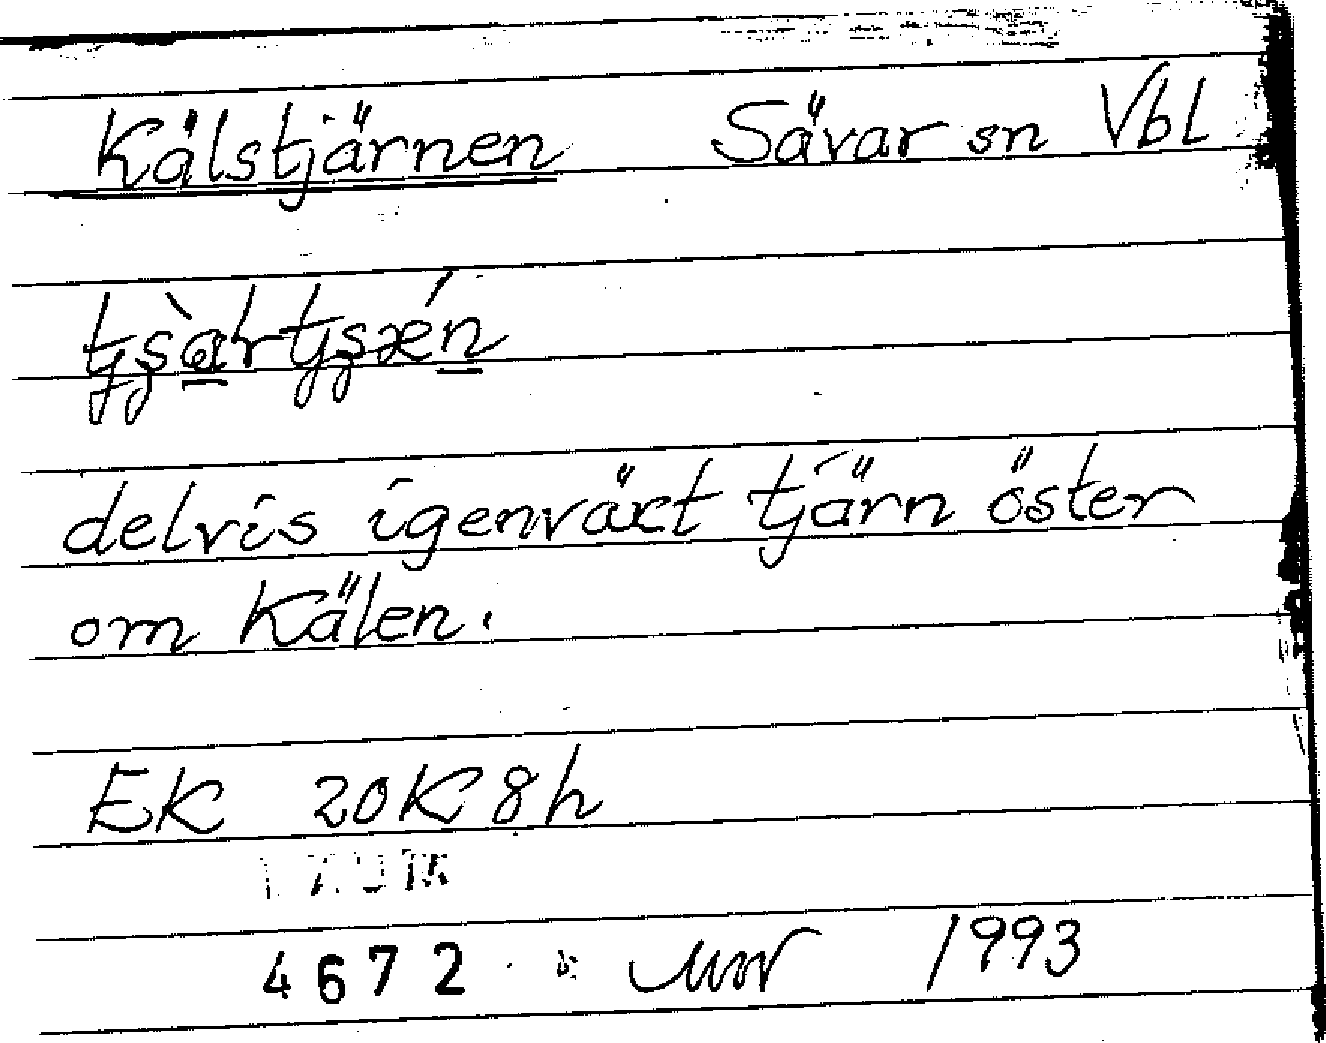 Kälstjärnen Sävar sn Vbl
delvis igenväxt tjärn öster
om Kälen.
EK 20K 8h
4672 1993